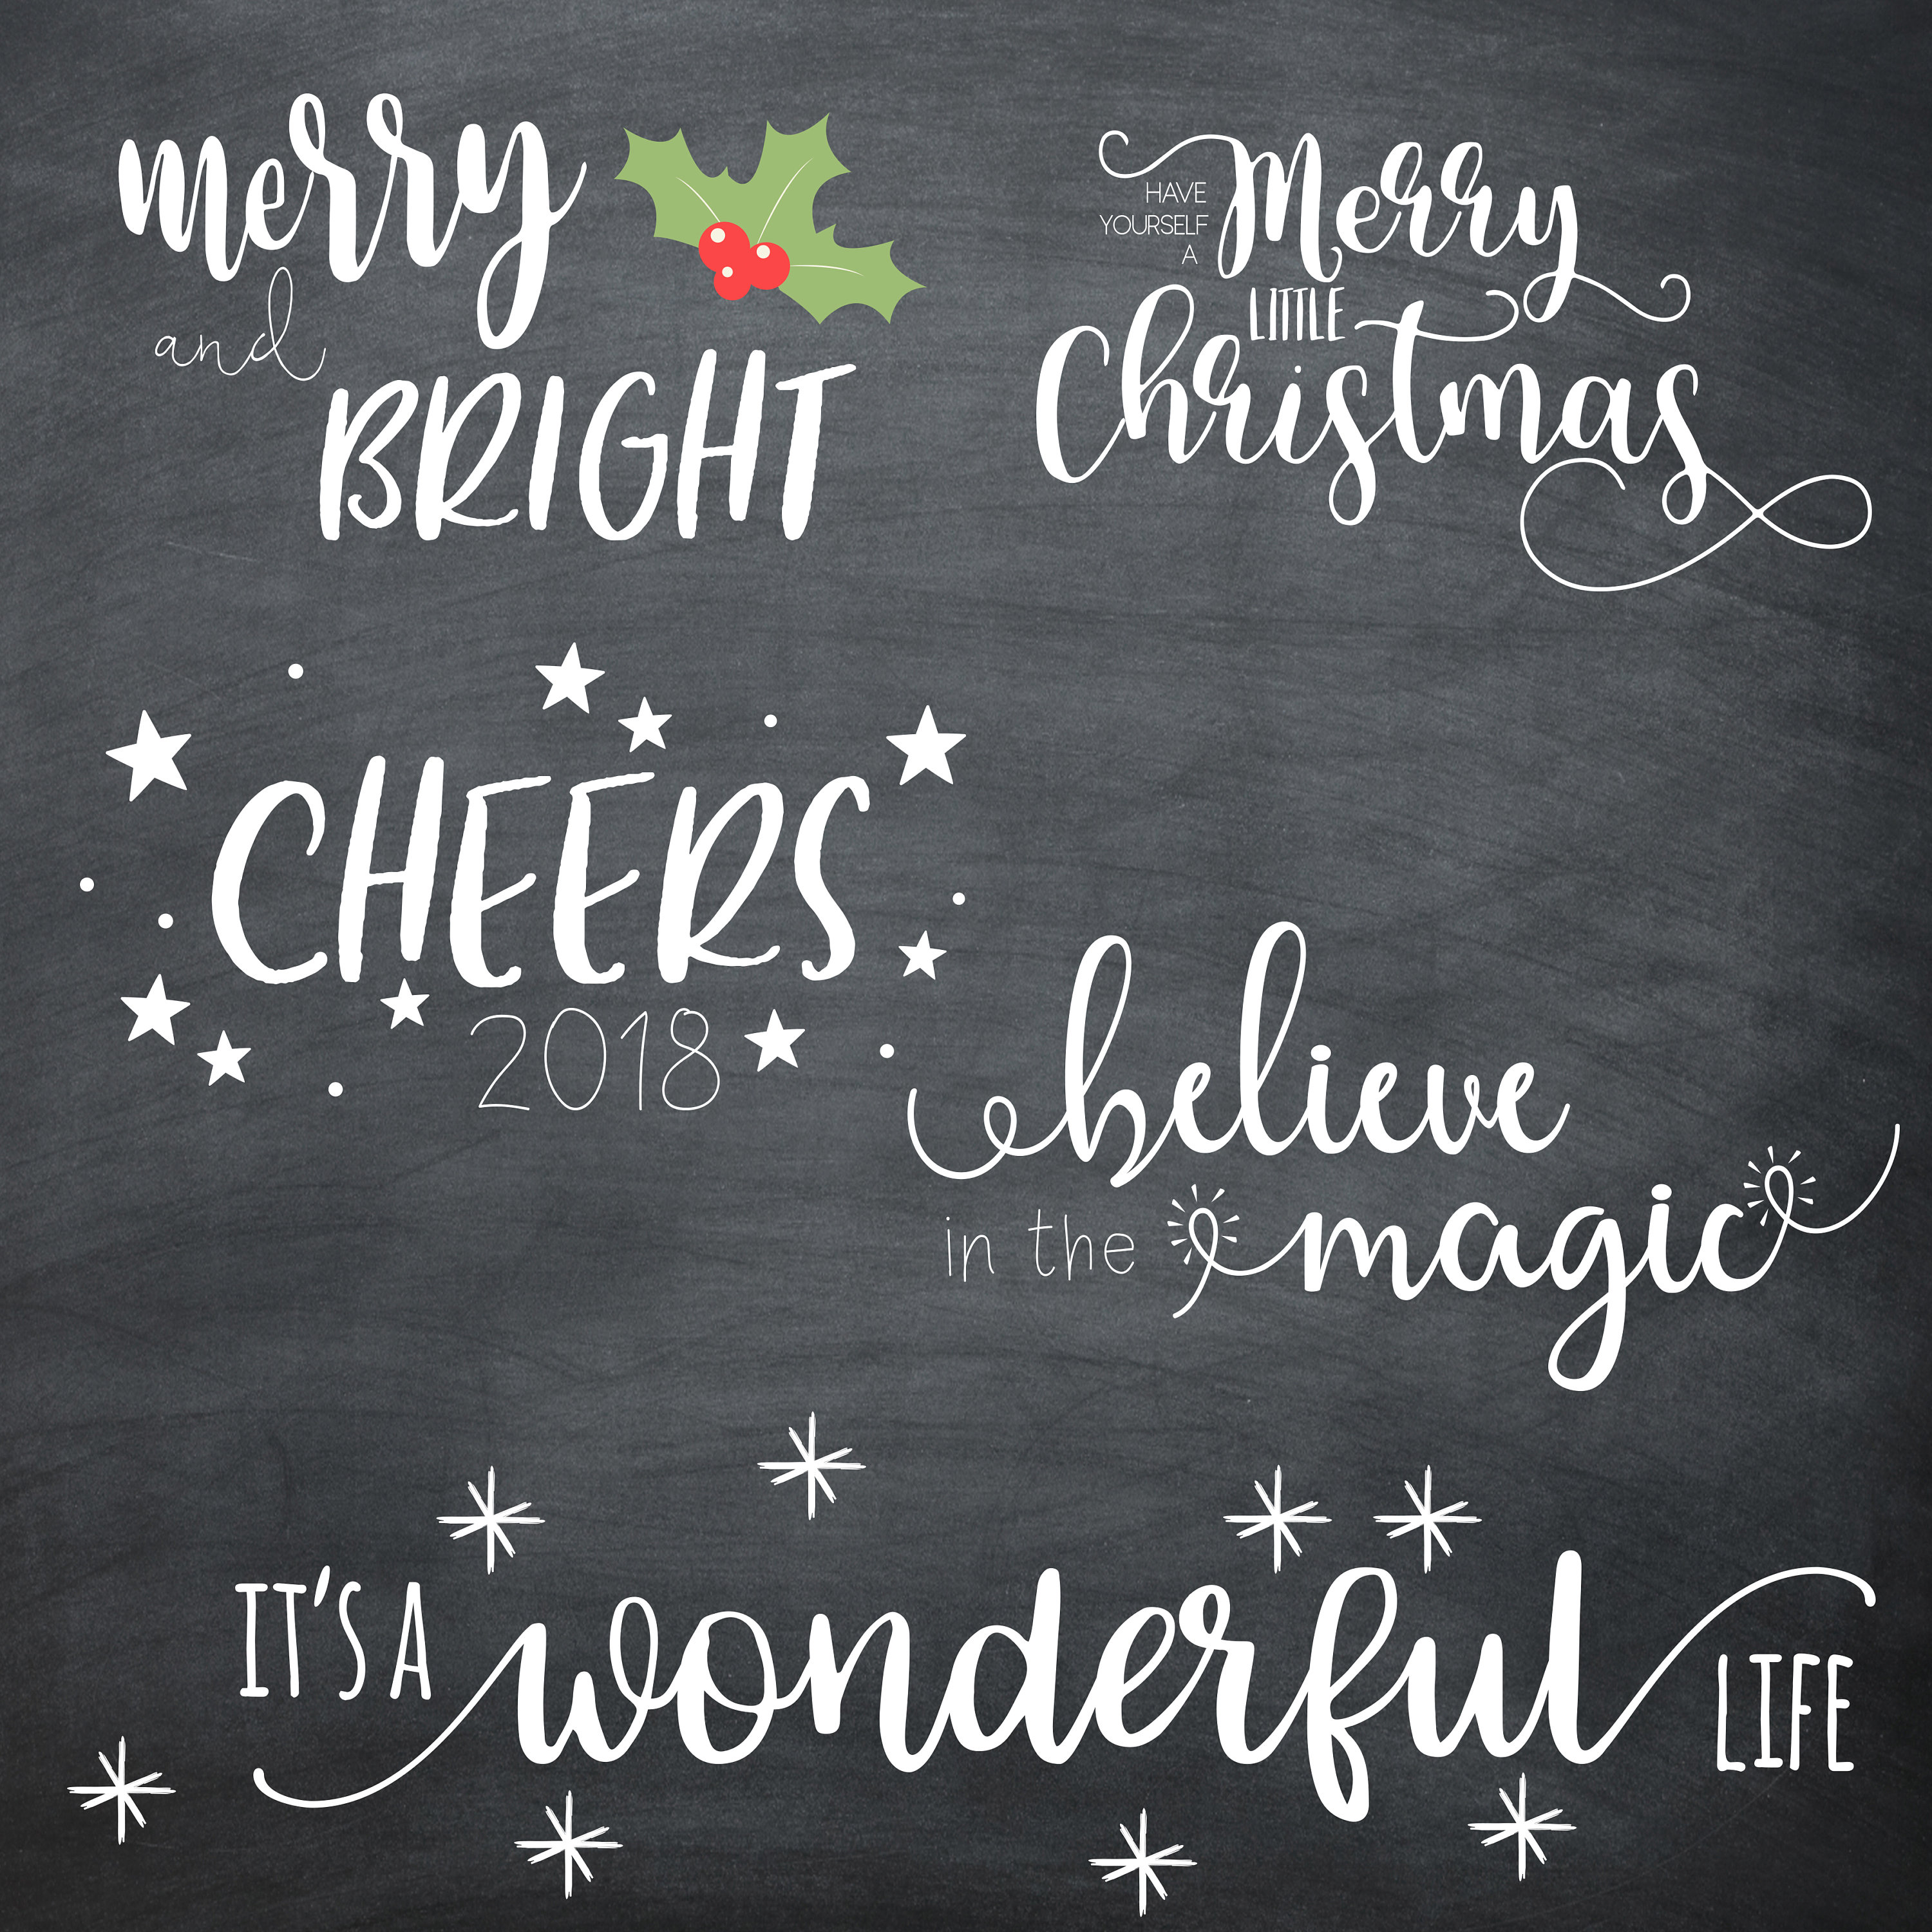 merry
and
BRIGHT
HAVE
YOURSELF
A
Merry
LITTLE
Christmas
CHEERS
2018
believe
in the magic
IT'S A wonderful LIFE